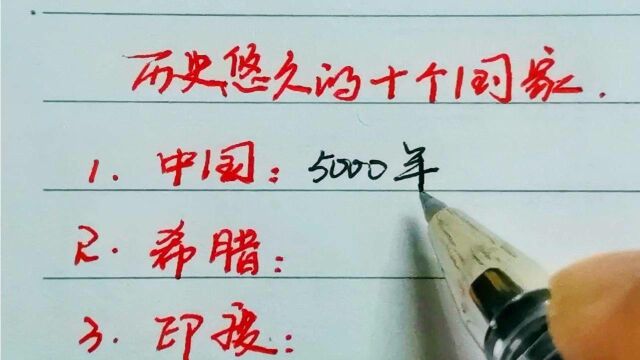 历史悠久的十个国家.
1. 中国: 5000年
2. 希腊:
3. 印度: